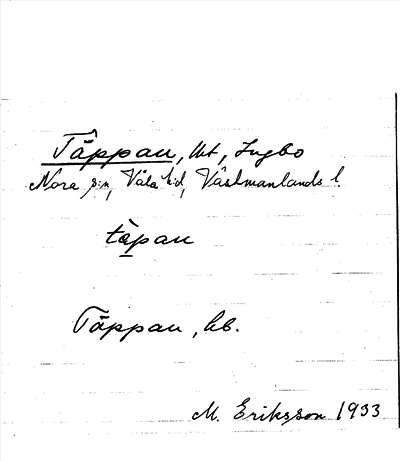 Täppan, lht, Ingbo
Nora s:n, Våla h:d, Västmanlands l.
tä̀pan
Täppan, hb.
M. Eriksson 1933